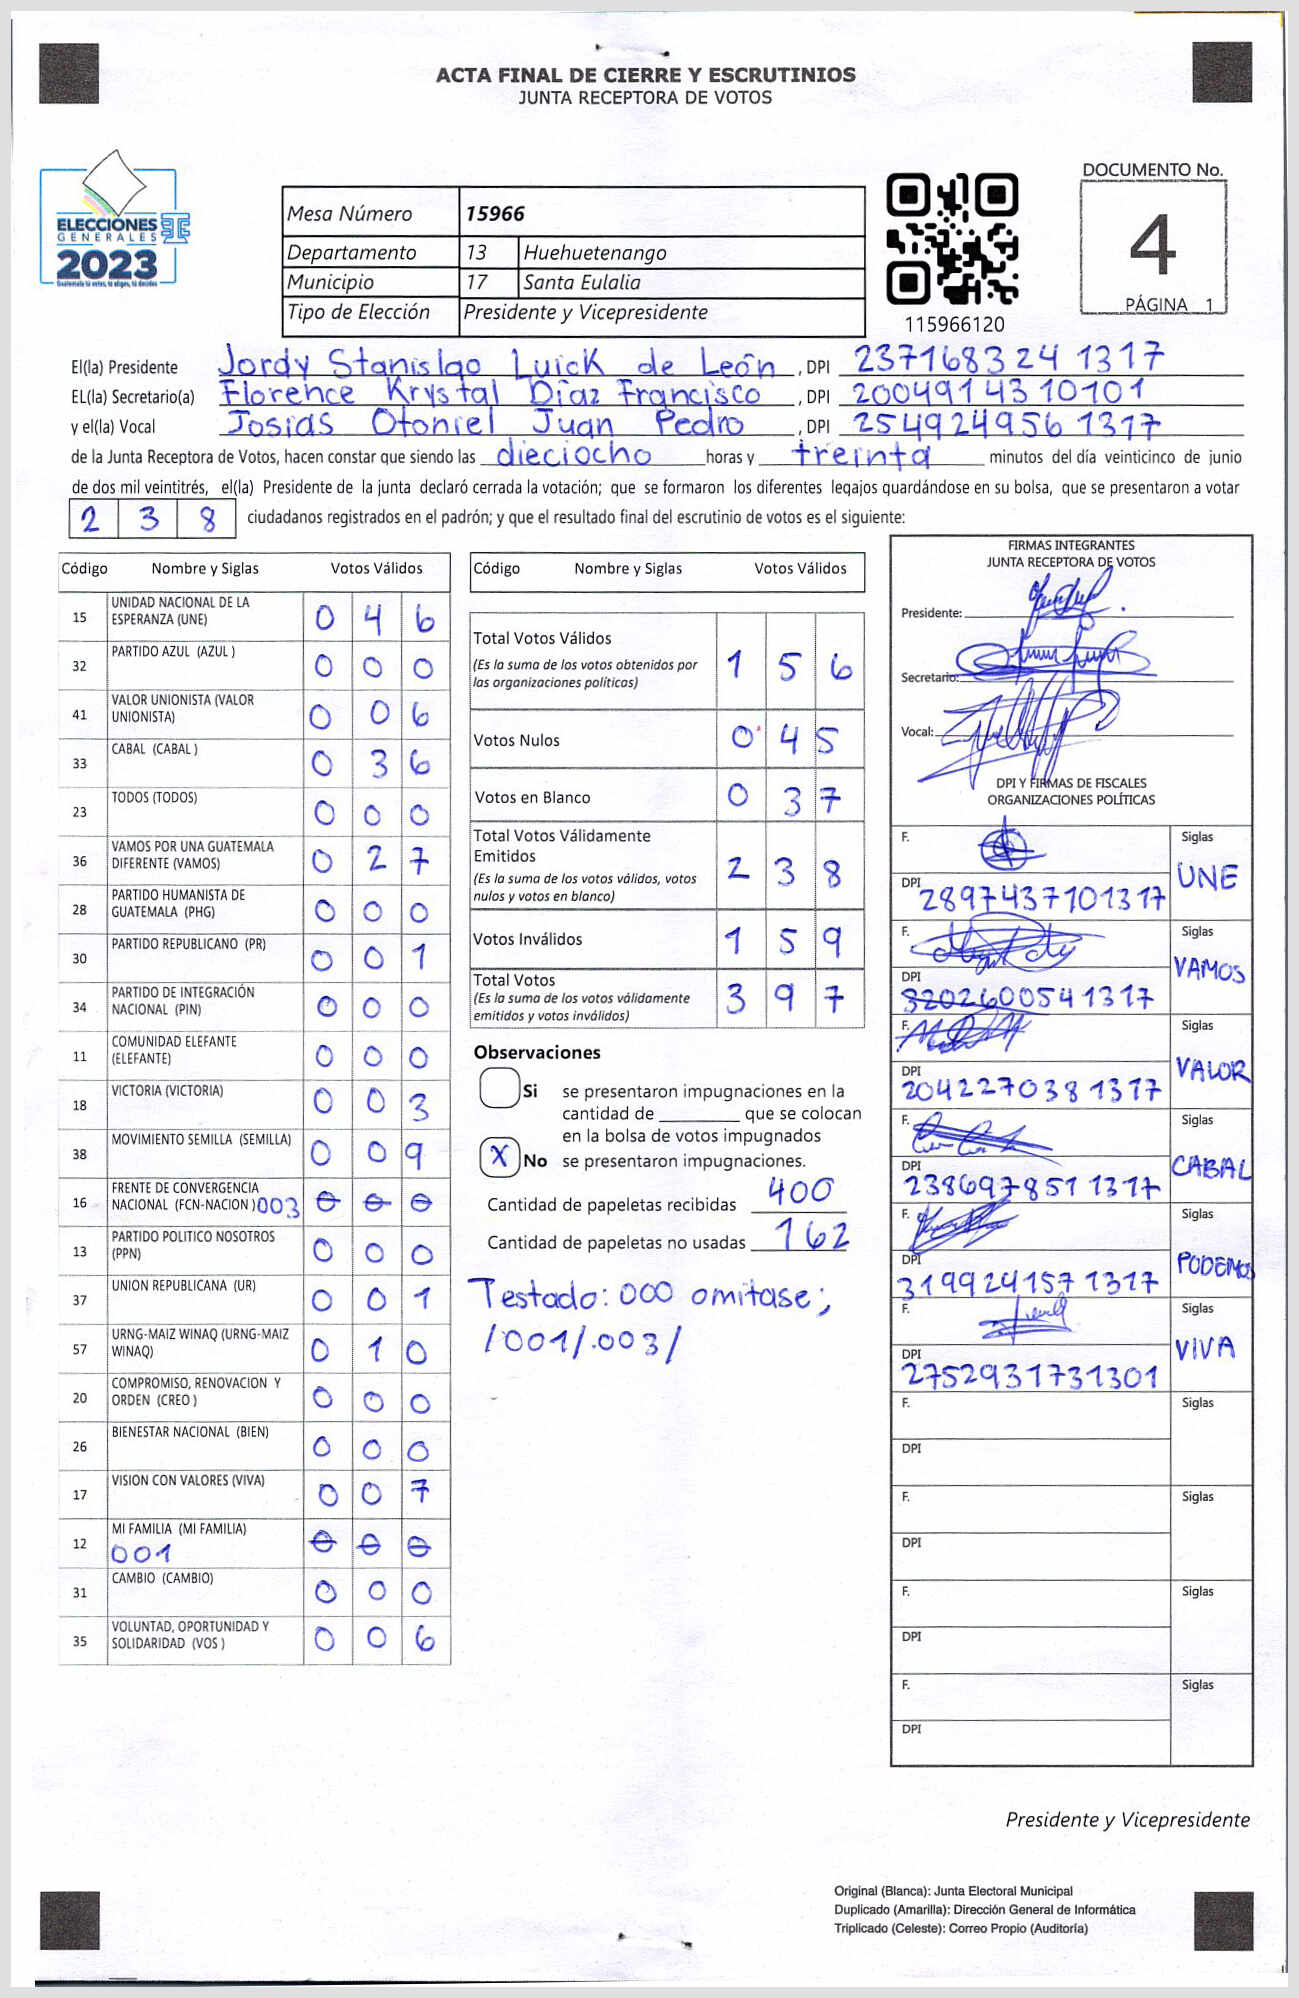 ACTA FINAL DE CIERRE Y ESCRUTINIOS
JUNTA RECEPTORA DE VOTOS
ELECCIONES
GENERALES
2023
Guatemala tú votas, tú eliges, tú decides
Mesa Número 15966
Departamento 13 Huehuetenango
Municipio 17 Santa Eulalia
Tipo de Elección Presidente y Vicepresidente
115966120
DOCUMENTO No.
4
PÁGINA 1
El(la) Presidente Jordy Stanislao Luick de León, DPI 2371683241317
EL(la) Secretario(a) Florence Krystal Díaz Francisco, DPI 2004914310101
y el(la) Vocal Josias Otoniel Juan Pedro, DPI 2549249561317
de la Junta Receptora de Votos, hacen constar que siendo las dieciocho horas y treinta minutos del día veinticinco de junio
de dos mil veintitrés, el(la) Presidente de la junta declaró cerrada la votación; que se formaron los diferentes legajos guardándose en su bolsa, que se presentaron a votar
2 3 8 ciudadanos registrados en el padrón; y que el resultado final del escrutinio de votos es el siguiente:
Código Nombre y Siglas Votos Válidos
15 UNIDAD NACIONAL DE LA ESPERANZA (UNE) 0 4 6
32 PARTIDO AZUL (AZUL ) 0 0 0
41 VALOR UNIONISTA (VALOR UNIONISTA) 0 0 6
33 CABAL (CABAL ) 0 3 6
23 TODOS (TODOS) 0 0 0
36 VAMOS POR UNA GUATEMALA DIFERENTE (VAMOS) 0 2 7
28 PARTIDO HUMANISTA DE GUATEMALA (PHG) 0 0 0
30 PARTIDO REPUBLICANO (PR) 0 0 1
34 PARTIDO DE INTEGRACIÓN NACIONAL (PIN) 0 0 0
11 COMUNIDAD ELEFANTE (ELEFANTE) 0 0 0
18 VICTORIA (VICTORIA) 0 0 3
38 MOVIMIENTO SEMILLA (SEMILLA) 0 0 9
16 FRENTE DE CONVERGENCIA NACIONAL (FCN-NACION ) 003 0 0 0
13 PARTIDO POLITICO NOSOTROS (PPN) 0 0 0
37 UNION REPUBLICANA (UR) 0 0 1
57 URNG-MAIZ WINAQ (URNG-MAIZ WINAQ) 0 1 0
20 COMPROMISO, RENOVACION Y ORDEN (CREO ) 0 0 0
26 BIENESTAR NACIONAL (BIEN) 0 0 0
17 VISION CON VALORES (VIVA) 0 0 7
12 MI FAMILIA (MI FAMILIA) 001 0 0 0
31 CAMBIO (CAMBIO) 0 0 0
35 VOLUNTAD, OPORTUNIDAD Y SOLIDARIDAD (VOS ) 0 0 6
Código Nombre y Siglas Votos Válidos
Total Votos Válidos 1 5 6
(Es la suma de los votos obtenidos por
las organizaciones políticas)
Votos Nulos 0 4 5
Votos en Blanco 0 3 7
Total Votos Válidamente
Emitidos 2 3 8
(Es la suma de los votos válidos, votos
nulos y votos en blanco)
Votos Inválidos 1 5 9
Total Votos 3 9 7
(Es la suma de los votos válidamente
emitidos y votos inválidos)
Observaciones
Si se presentaron impugnaciones en la
cantidad de ________ que se colocan
en la bolsa de votos impugnados
X No se presentaron impugnaciones.
Cantidad de papeletas recibidas 400
Cantidad de papeletas no usadas 162
Testado: 000 omitase;
/001/.003/
FIRMAS INTEGRANTES
JUNTA RECEPTORA DE VOTOS
Presidente:
Secretario:
Vocal:
DPI Y FIRMAS DE FISCALES
ORGANIZACIONES POLÍTICAS
F. Siglas UNE
DPI 2897437101317
F. Siglas VAMOS
DPI 3202600541317
F. Siglas VALOR
DPI 2042270381317
F. Siglas CABAL
DPI 2386978511317
F. Siglas PODEMOS
DPI 3199241571317
F. Siglas VIVA
DPI 2752931731301
F. Siglas
DPI
F. Siglas
DPI
F. Siglas
DPI
F. Siglas
DPI
Presidente y Vicepresidente
Original (Blanca): Junta Electoral Municipal
Duplicado (Amarilla): Dirección General de Informática
Triplicado (Celeste): Correo Propio (Auditoría)